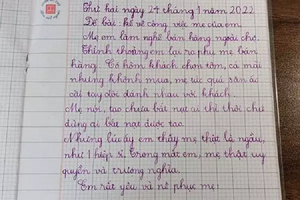 Thứ hai ngày 24 tháng 1 năm 2022
Đề bài: kể về công việc mẹ của em
Mẹ em làm nghề bán hàng ngoài chợ.
Thỉnh thoảng em lại ra phụ mẹ bán
hàng. Có hôm khách chọn tôm, cá mãi
nhưng không mua, mẹ tức quá sắn áo
cởi tay đòi đánh nhau với khách.
Mẹ nói, tao chưa bắt nạt ai thì thôi chứ
đừng ai bắt nạt được tao.
Những lúc ấy em thấy mẹ thật là ngầu,
như 1 hiệp sĩ. Trong mắt em, mẹ thật uy
quyền và trượng nghĩa.
Em rất yêu và nể phục mẹ!